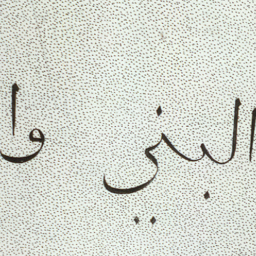 البني وا